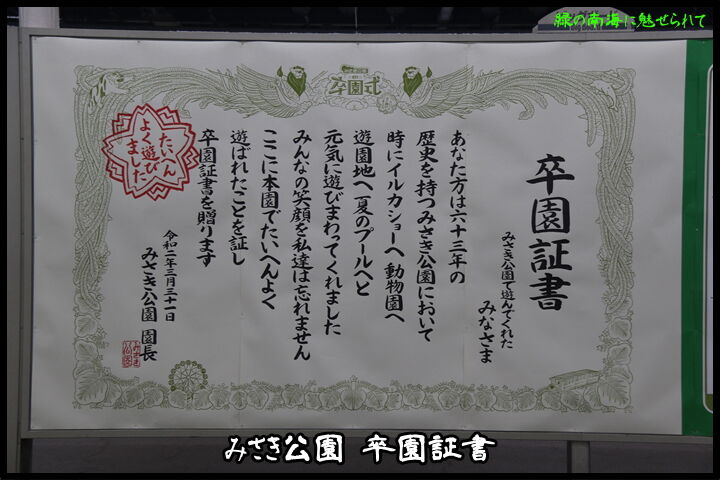 緑の南海に魅せられて
卒園式
卒園証書
みさき公園で遊んでくれた
みなさま
あなた方は六十三年の
歴史を持つみさき公園において
時にイルカショーへ動物園へ
遊園地へ夏のプールへと
元気に遊びまわってくれました
みんなの笑顔を私達は忘れません
ここに本園でたいへんよく
遊ばれたことを証し
卒園証書を贈ります
令和二年三月三十一日
みさき公園 園長
たいへん
よく遊び
ました
みさき公園 卒園証書